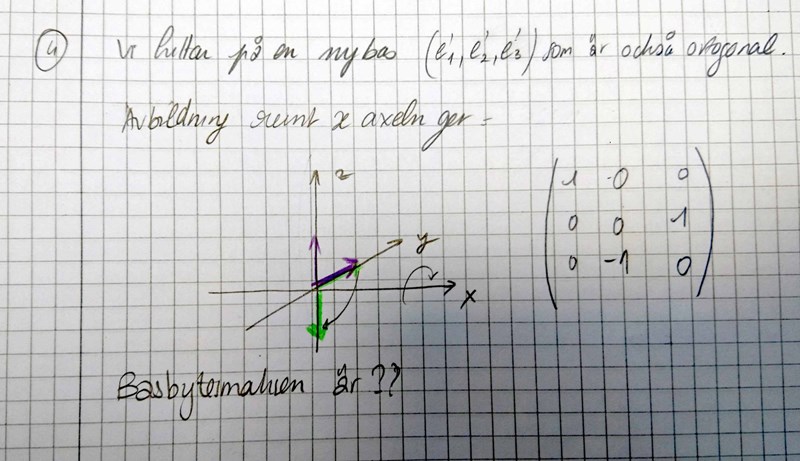 4 Vi hittar på en ny bas (e'1, e'2, e'3) som är också ortogonal.
Avbildning runt x axeln ger =
z
y
x
1 0 0
0 0 1
0 -1 0
Basbytesmatrisen är ??